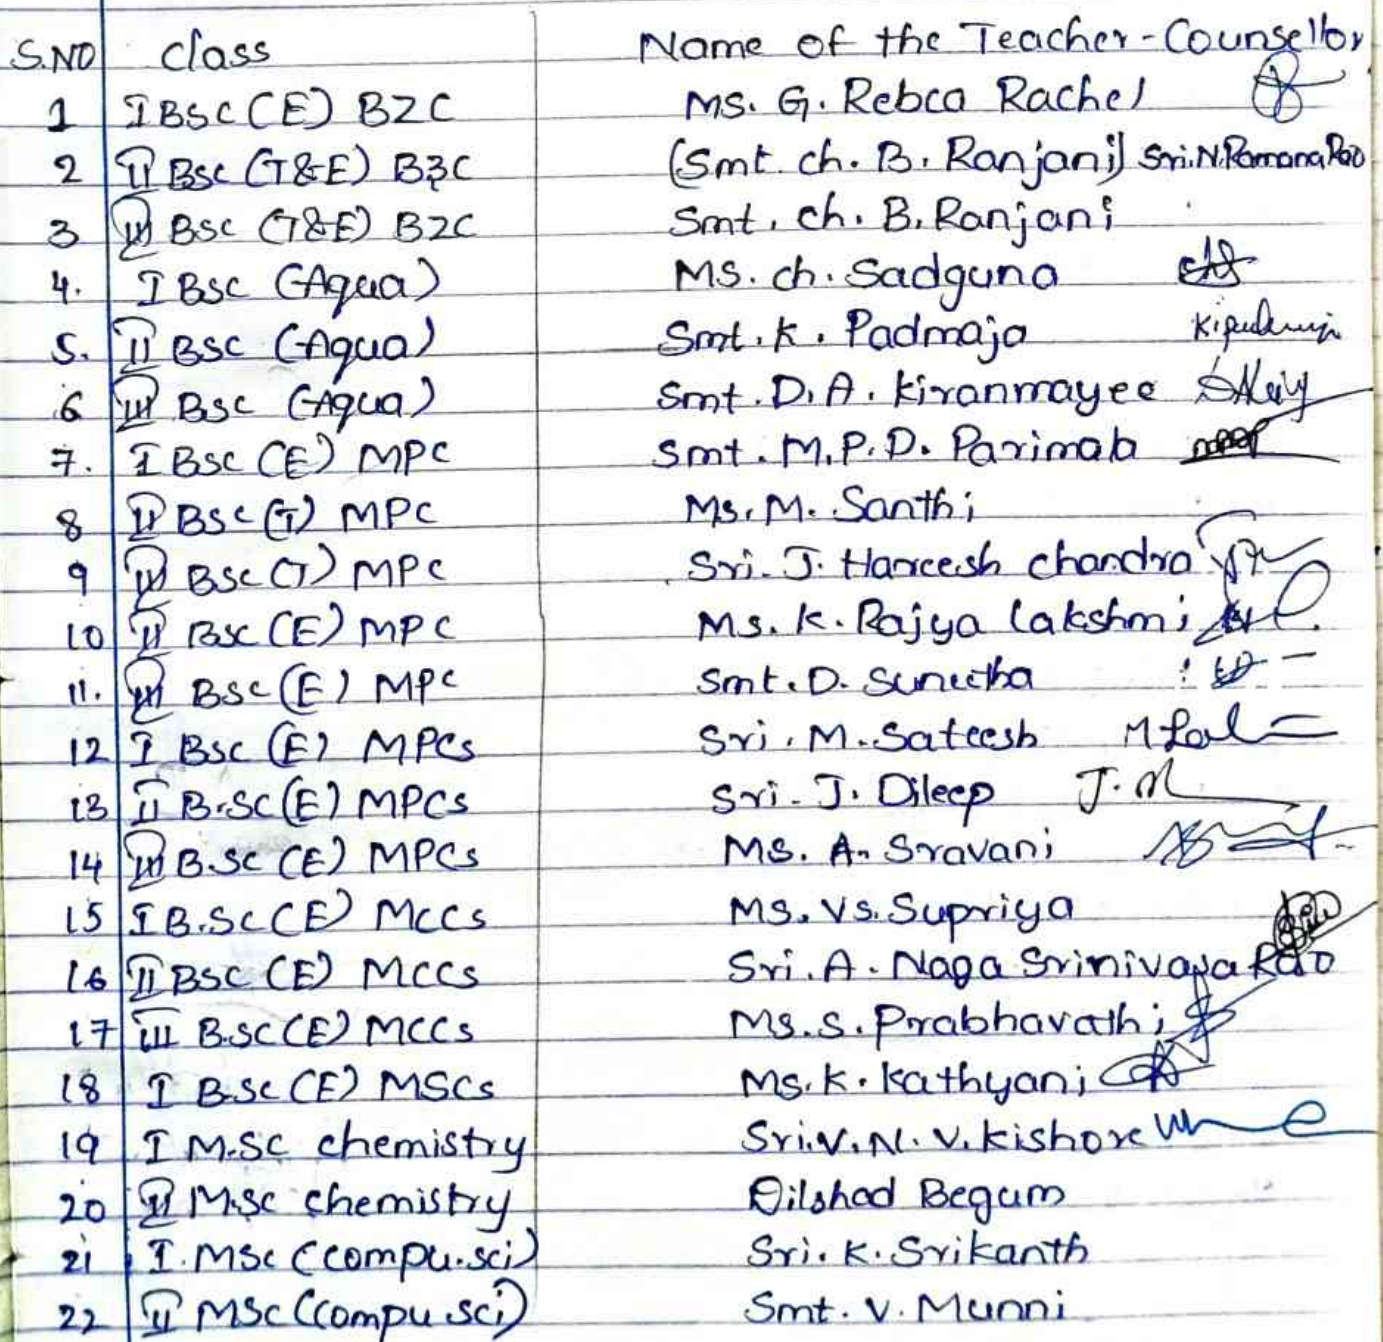 S.NO class Name of the Teacher-Counsellor
1 I BSC (E) BZC Ms. G. Rebca Rachel
2 II BSC (T&E) BZC (Smt. ch. B. Ranjani) Sri.N.Ramana Rao
3 III BSC (T&E) BZC Smt. ch. B. Ranjani
4. I BSC (Aqua) Ms. ch. Sadguna
5. II BSC (Aqua) Smt. K. Padmaja
6 III BSC (Aqua) Smt. D.A. Kiranmayee
7. I BSC (E) MPC Smt. M.P.D. Parimala
8 II BSC (T) MPC Ms. M. Santhi
9 III BSC (T) MPC Sri. J. Hareesh chandra
10 II BSC (E) MPC Ms. K. Rajya Lakshmi
11. III BSC (E) MPC Smt. D. Suneetha
12 I BSC (E) MPCs Sri. M. Sateesh
13 II B.SC (E) MPCs Sri. J. Dileep
14 III B.SC (E) MPCs Ms. A. Sravani
15 I B.SC (E) MCCs Ms. VS. Supriya
16 II BSC (E) MCCs Sri. A. Naga Srinivasa Rao
17 III B.SC (E) MCCs Ms. S. Prabhavathi
18 I B.SC (E) MSCs Ms. K. Kathyani
19 I M.SC chemistry Sri. V. N. V. Kishore
20 II M.SC chemistry Dilshad Begum
21 I. MSC (compu.sci) Sri. K. Srikanth
22 II MSC (compu sci) Smt. V. Munni